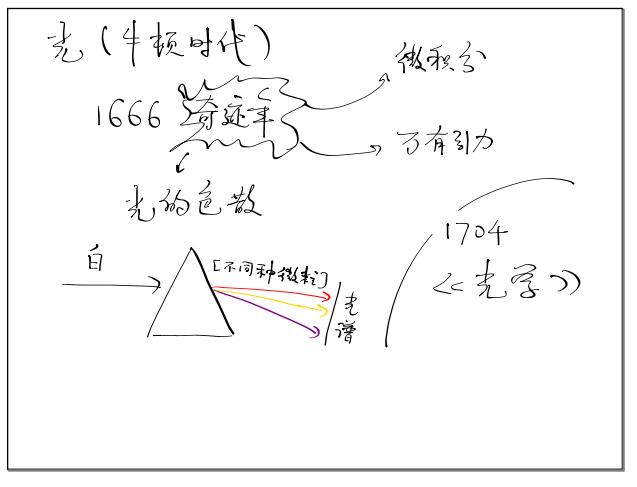 光(牛顿时代)
微积分
1666 奇迹年
万有引力
光的色散
1704
《光学》
白
[不同种微粒]
光谱